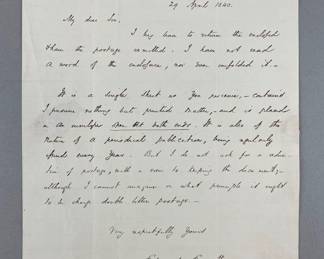 29 April 1840.
My dear Sir,
I beg leave to return the enclosed
than the postage remitted. I have not read
a word of the enclosure, nor even unfolded it.—
It is a single sheet as you perceive,— contained
I presume nothing but printed matter,— and is placed
in an envelope open at both ends. It is also of the
nature of a periodical publication, being regularly
issued every year. But I do not ask for a reduc-
tion of postage, with a view to keeping the document,—
although I cannot imagine on what principle it ought
to be charged double letter postage.—
Very respectfully Yours